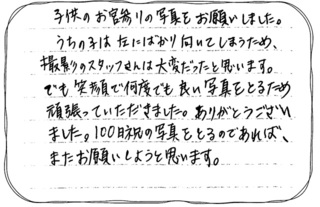 子供のお宮参りの写真をお願いしました。
うちの子は左にばかり向いてしまうため、
撮影のスタッフさんは大変だったと思います。
でも笑顔で何度でも良い写真をとるため
頑張っていただきました。ありがとうござい
ました。100日祝の写真をとるのであれば、
またお願いしようと思います。